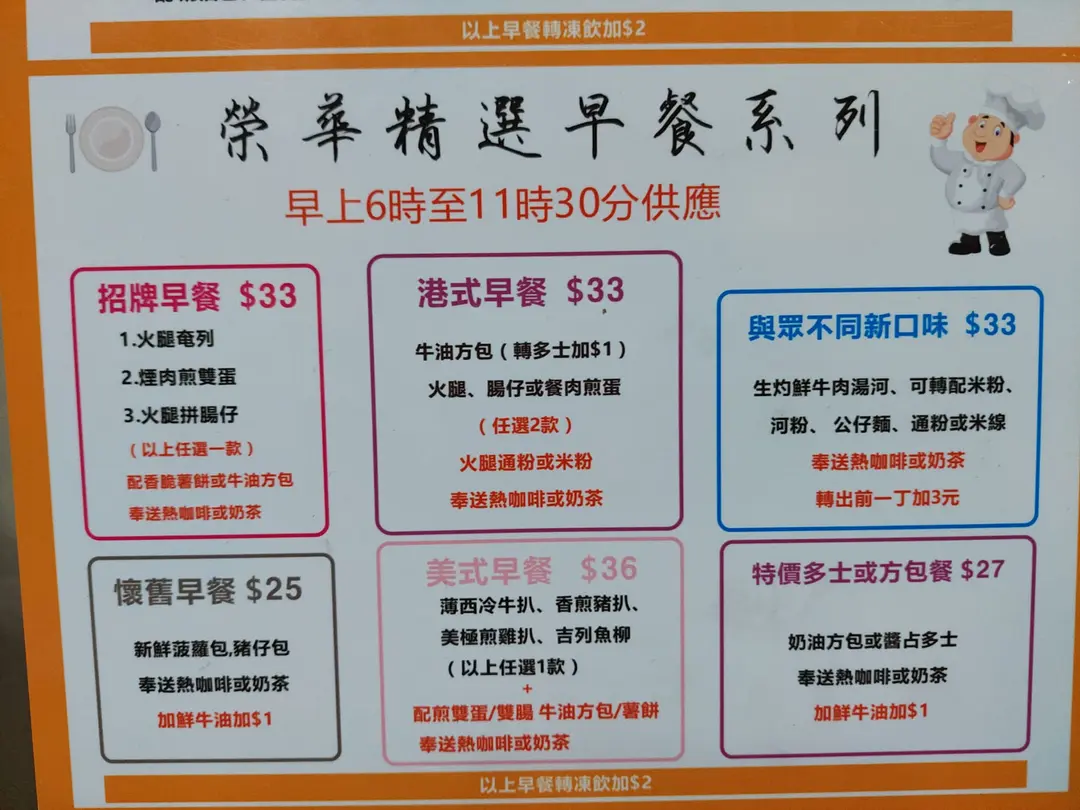 以上早餐轉凍飲加$2
榮華精選早餐系列
早上6時至11時30分供應
招牌早餐 $33
1.火腿奄列
2.煙肉煎雙蛋
3.火腿拼腸仔
（以上任選一款）
配香脆薯餅或牛油方包
奉送熱咖啡或奶茶
港式早餐 $33
牛油方包（轉多士加$1）
火腿、腸仔或餐肉煎蛋
（任選2款）
火腿通粉或米粉
奉送熱咖啡或奶茶
與眾不同新口味 $33
生灼鮮牛肉湯河、可轉配米粉、
河粉、 公仔麵、通粉或米線
奉送熱咖啡或奶茶
轉出前一丁加3元
懷舊早餐 $25
新鮮菠蘿包,豬仔包
奉送熱咖啡或奶茶
加鮮牛油加$1
美式早餐 $36
薄西冷牛扒、香煎豬扒、
美極煎雞扒、吉列魚柳
（以上任選1款）
+
配煎雙蛋/雙腸 牛油方包/薯餅
奉送熱咖啡或奶茶
特價多士或方包餐 $27
奶油方包或醬占多士
奉送熱咖啡或奶茶
加鮮牛油加$1
以上早餐轉凍飲加$2